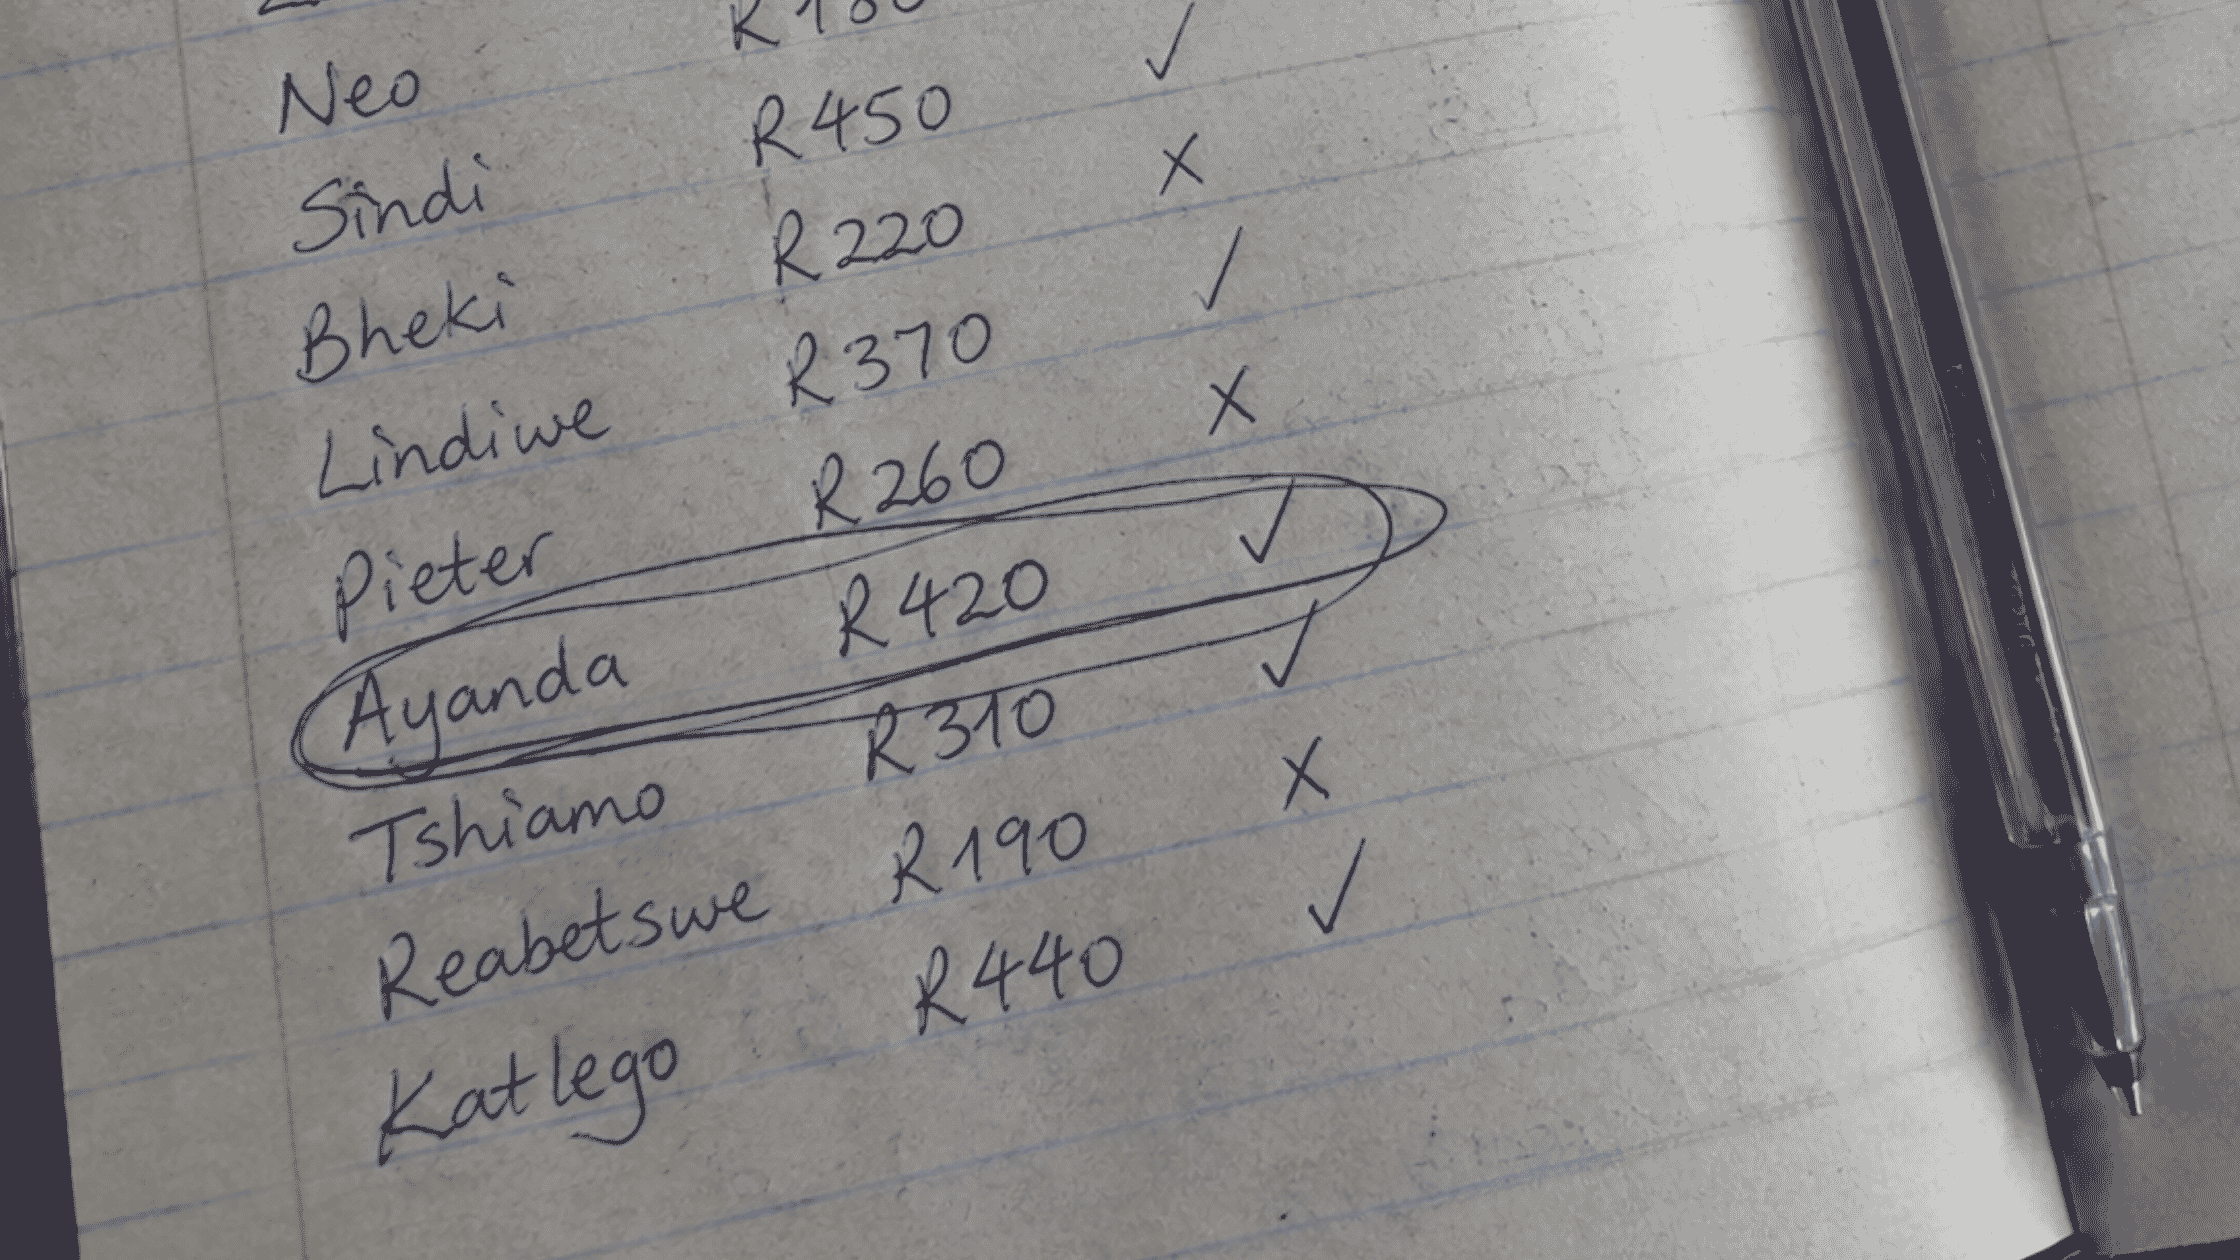 Neo
Sindi R450 ✓
Bheki R220 x
Lindiwe R370 ✓
Pieter R260 x
Ayanda R420 ✓
Tshiamo R310 ✓
Reabetswe R190 x
Katlego R440 ✓